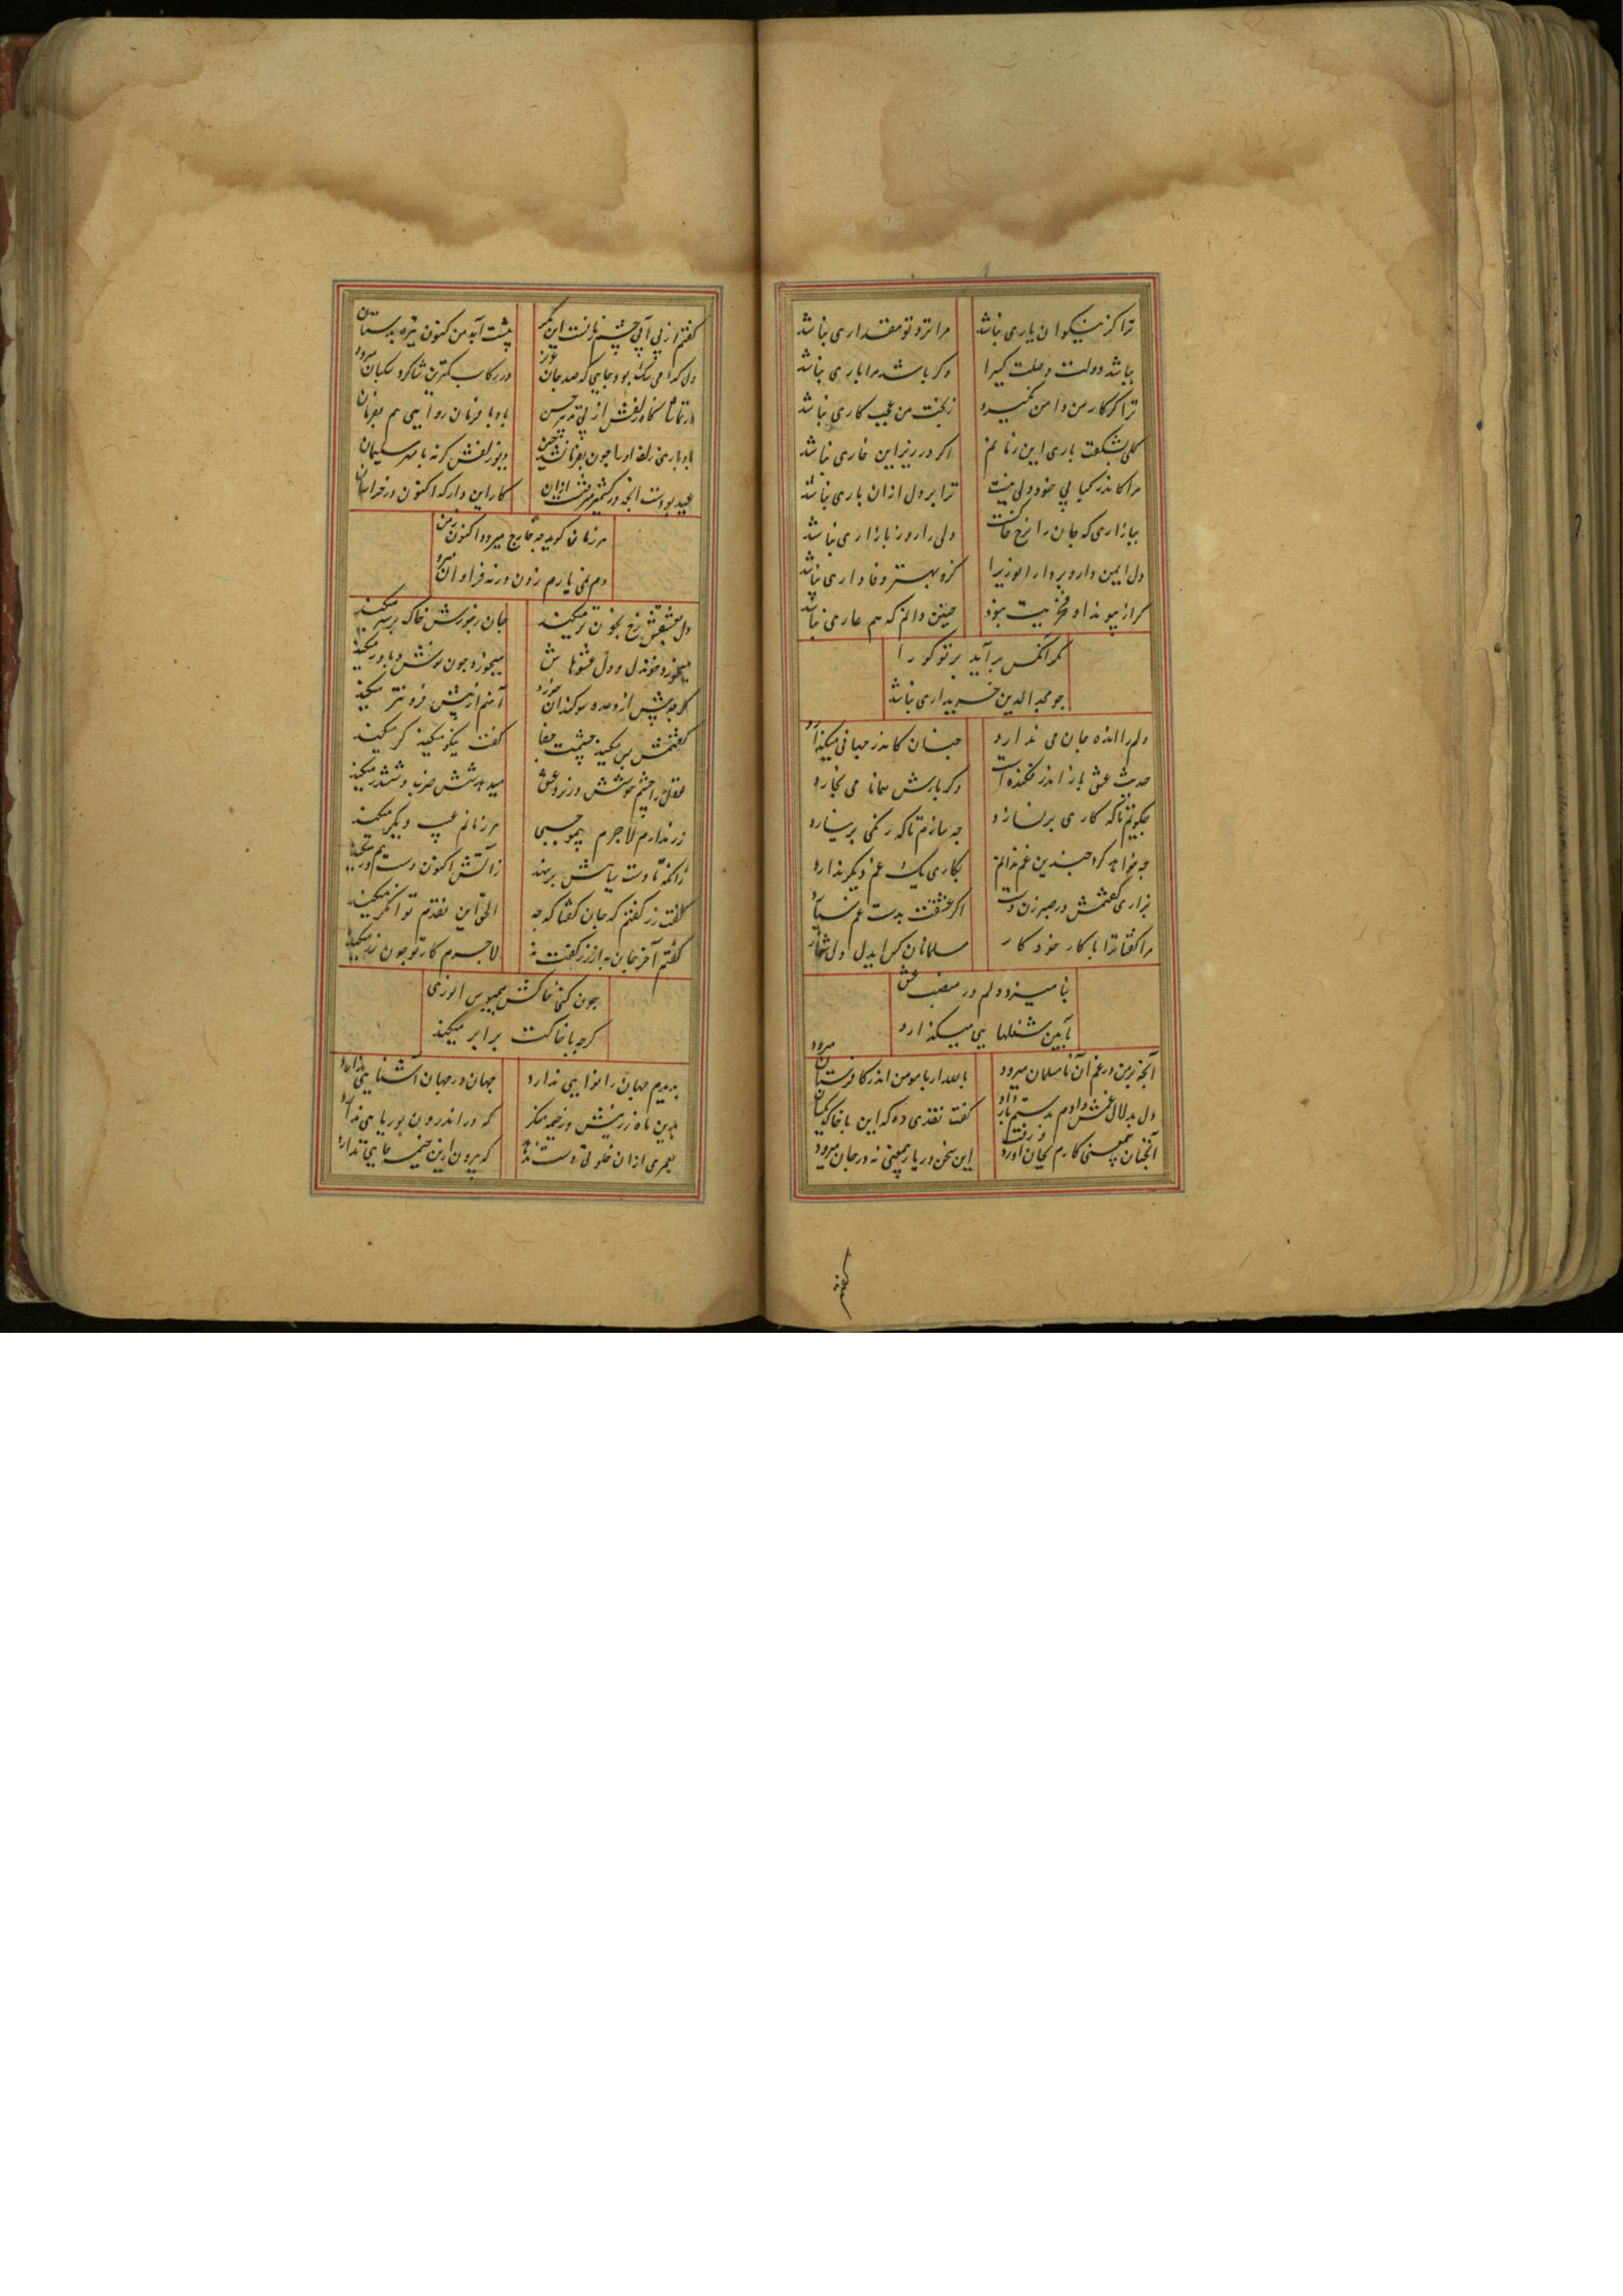 ترا کز نیکوان یاری نباشد مرا نزد تو مقداری نباشد
نباشد دولت وصلت کسی را وکر باشد مرا باری نباشد
ترا کر کار من دامن نکیرد ز بخت من عجب کاری نباشد
کلی نشکفت باری این زمانم اکر در زیر این خاری نباشد
مرا کاندر کیایی خود دلی نیست ترا بر دل ازان باری نباشد
ببازاری که جان را نرخ خاکست دلی را روز بازاری نباشد
دل ایمن دار و بردار انوری را کزو بهتر وفاداری نباشد
کر از پیوند او فخریت نبود چنین دانم که هم عاری نباشد
کم از آنکس برآید بر تو کو را
جو مجد الدین خریداری نباشد
دلم را انده جان می ندارد جنان کاندر جهانی میکذارد
حدیث عشق باز اندر فکندست دکر بارش همانا می بخارد
جکویم تا که کاری برنسازد جه سازم تا که رنکی برنیارد
جه خواهد کرد جندین غم ندانم بکاری یک غم دیکر ندارد
بزاری کفتمش در صبر زن دست اکر عشقت بدست غم سپارد
مرا کفتا ترا با کار خود کار مسلمانان کس ایدل دل شمارد
بنامیزد دلم در منصب عشق
بآیین شغلهایی میکذارد
آنجه بر من در غم آن نامسلمان میرود بالله ار با مومن اندر کافرستان میرود
دل بدلال غمش دادم بدستم باز داد کفت نقدی ده که این با خاک یکسان
آنجنان بی معنی کارم بجان آورد و رفت این سخن در یار بی معنی نه در جان میرود
کفتم
کفتم از بی آبی جشم زمانست این مکر پشت آید من کنون تیره بدستان
دل کدامی سک بود جایی که صد جان عزیز در رکاب کمترین شاکرد سکبان میرود
در تماشاکاه زلفش از پی ترتیب حسن باد با فرمان روایی هم بفرمان
باد باری زلف او را جون بفرمان شد جنین دیو زلفش کرنه با مهر سلیمان
عید بودست آنجه در کشمیر میرفت ازان کار این دارد که اکنون در خراسان
هر زمان کوید جه خارج میرود اکنون ز من
دم نمی یارم زدن ورنه فراوان میرود
دل بعشقش رخ بخون تر میکند جان ز رنجورش خاک بر سر میکند
میخورد خون دل و دل عشوهاش میخورد جون نوش و باور میکند
کرجه بیش از وعده سوکندان خورد آنهم از پیش فزونتر میکند
کفتمش بس میکند جشمت جفا کفت نیکو میکند کر میکند
عقل را جشم خوشش در نرد عشق میدهد شش ضرب و ششدر میکند
زر ندارم لاجرم بی موجبی هر زمانم عیب دیکر میکند
زانکه تا دست سیاهش برنهد زآتش اکنون دست هم در میکند
کفت زر کفتم که جان کفتا که جه الحق این نقدم توانکر میکند
کفتم آخر جان به از زر کفت نه لاجرم کار تو جون زر میکند
جون کنی خاکش همیبوس انوری
کرجه با خاکت برابر میکند
بدیدم جهان را نوایی ندارد جهان در جهان آشنایی ندارد
بدین ماه زرینش در خیمه منکر که در اندرون بوریایی ندارد
بعمری ازان خلوتی دست ندهد که بیرون ازین خیمه جایی ندارد